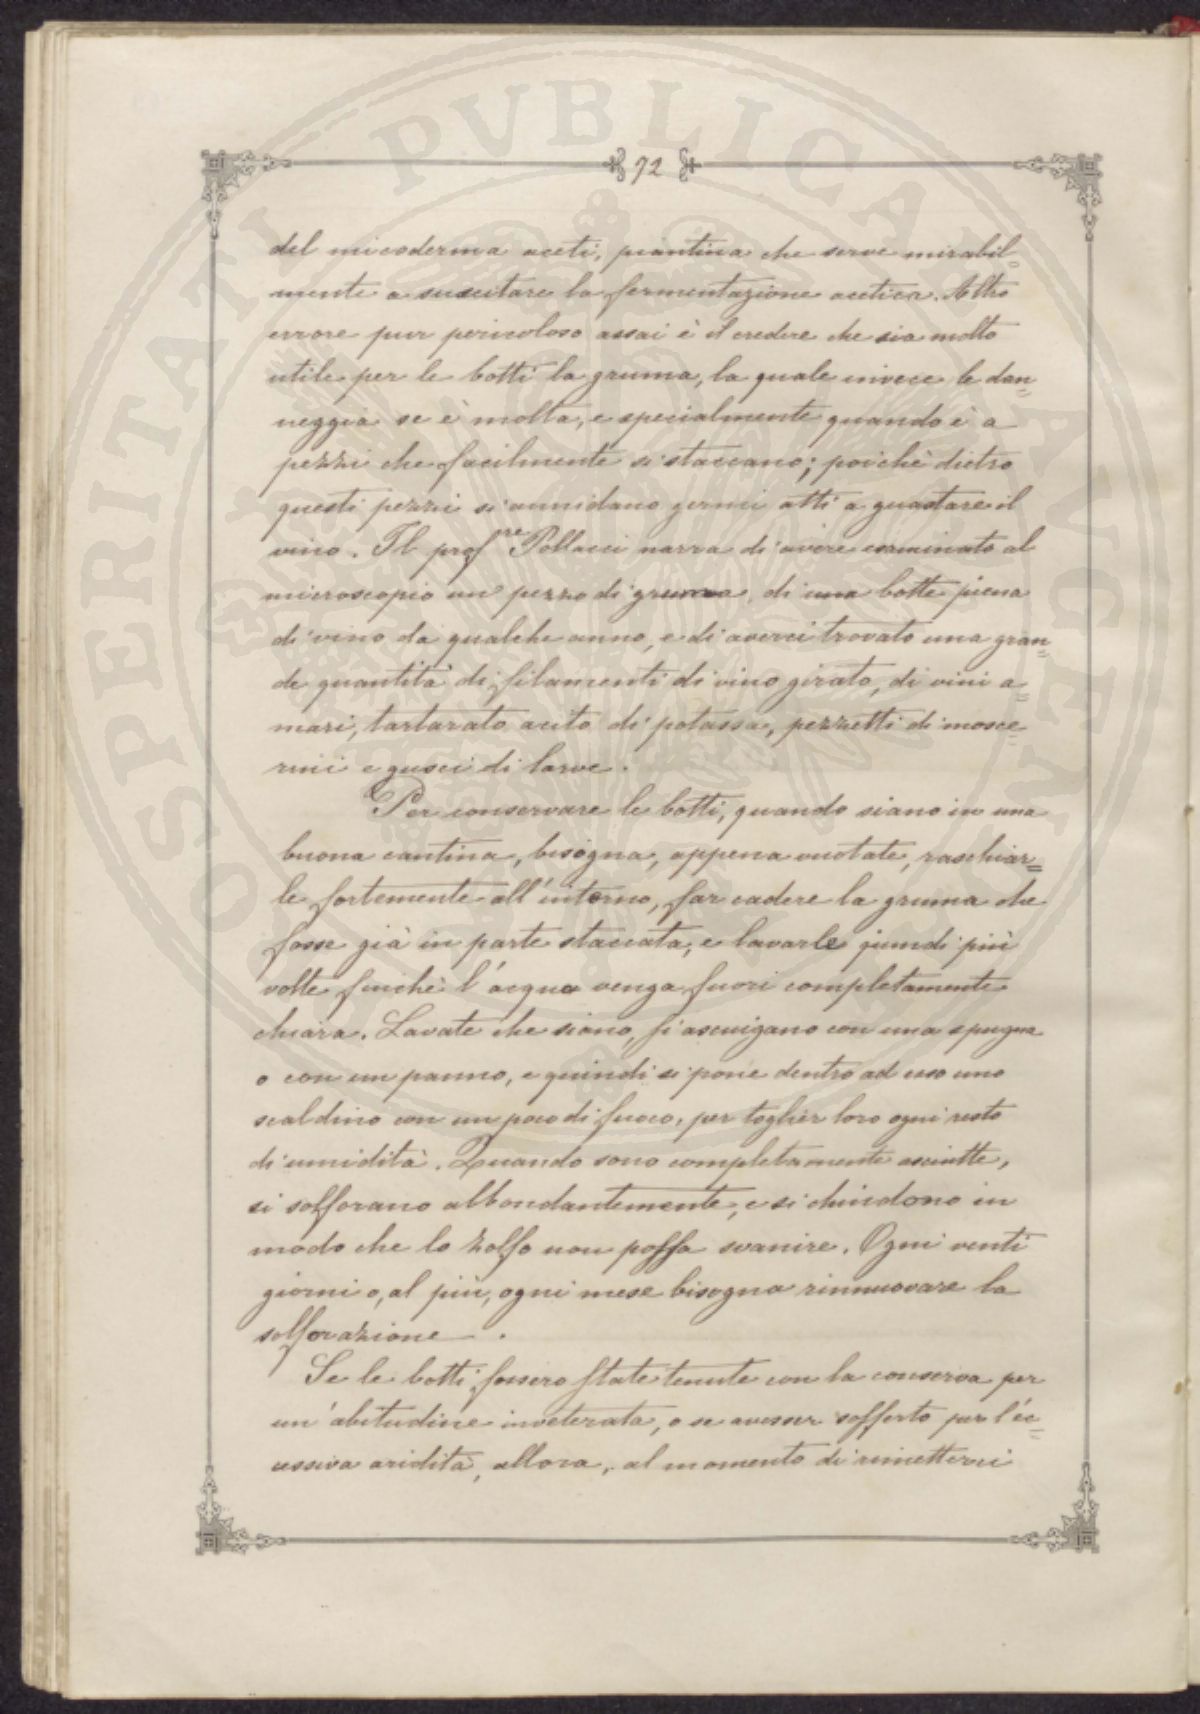 72
del micoderma aceti, piantina che serve mirabil=
mente a suscitare la fermentazione acetica. Altro
errore pur pericoloso assai è il credere che sia molto
utile per le botti la gruma, la quale invece le dan=
neggia se è molta, e specialmente quando è a
pezzi che facilmente si staccano; poichè dietro
questi pezzi si annidano germi atti a guastare il
vino. Il prof.re Pollacci narra di avere esaminato al
microscopio un pezzo di gruma, di una botte piena
di vino da qualche anno, e di averci trovato una gran=
de quantità di filamenti di vino girato, di vini a=
mari, tartarato acito di potassa, pezzetti di mosce=
rini e gusci di larve.
Per conservare le botti, quando siano in una
buona cantina, bisogna, appena vuotate, raschiar=
le fortemente all'intorno, far cadere la gruma che
fosse già in parte staccata, e lavarle quindi più
volte finchè l'acqua venga fuori completamente
chiara. Lavate che siano, si asciugano con una spugna
o con un panno, e quindi si pone dentro ad esse uno
scaldino con un poco di fuoco, per toglier loro ogni resto
di umidità. Quando sono completamente asciutte,
si solforano abbondantemente, e si chiudono in
modo che lo zolfo non possa svanire. Ogni venti
giorni o, al più, ogni mese bisogna rinnuovare la
solforazione.
Se le botti fossero state tenute con la conserva per
un'abitudine inveterata, o se avesser sofferto per l'ec=
cessiva aridità, allora, al momento di rimetterci
SPERITATI PVBLICAE AVGENDAE